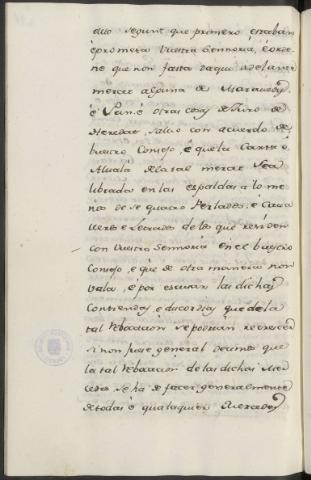 dito segunt que primero estaban
é prometa Vuestra Señoria, é orde-
ne que non fasta daqui adelante
merced alguna de Maravedis
é Pan, é otras cosas de Juro de
Heredat, salvo con acuerdo de
vuestro Consejo, é que la Carta ó
Alvalá de la tal merced sea
librada en las espaldas á lo me-
nos de de quatro Perlados, é Cava-
lleros é Letrados de los que residen
con Vuestra Señoria en el vuestro
Consejo, é que de otra manera non
vala, é por escusar las dichas
Contiendas, é discordias que de la
tal rebocacion se podrian recrescer
si non fuese general decimos que
la tal rebocacion de las dichas Mer-
cedes se ha de facer generalmente
de todas é qualesquier Mercedes